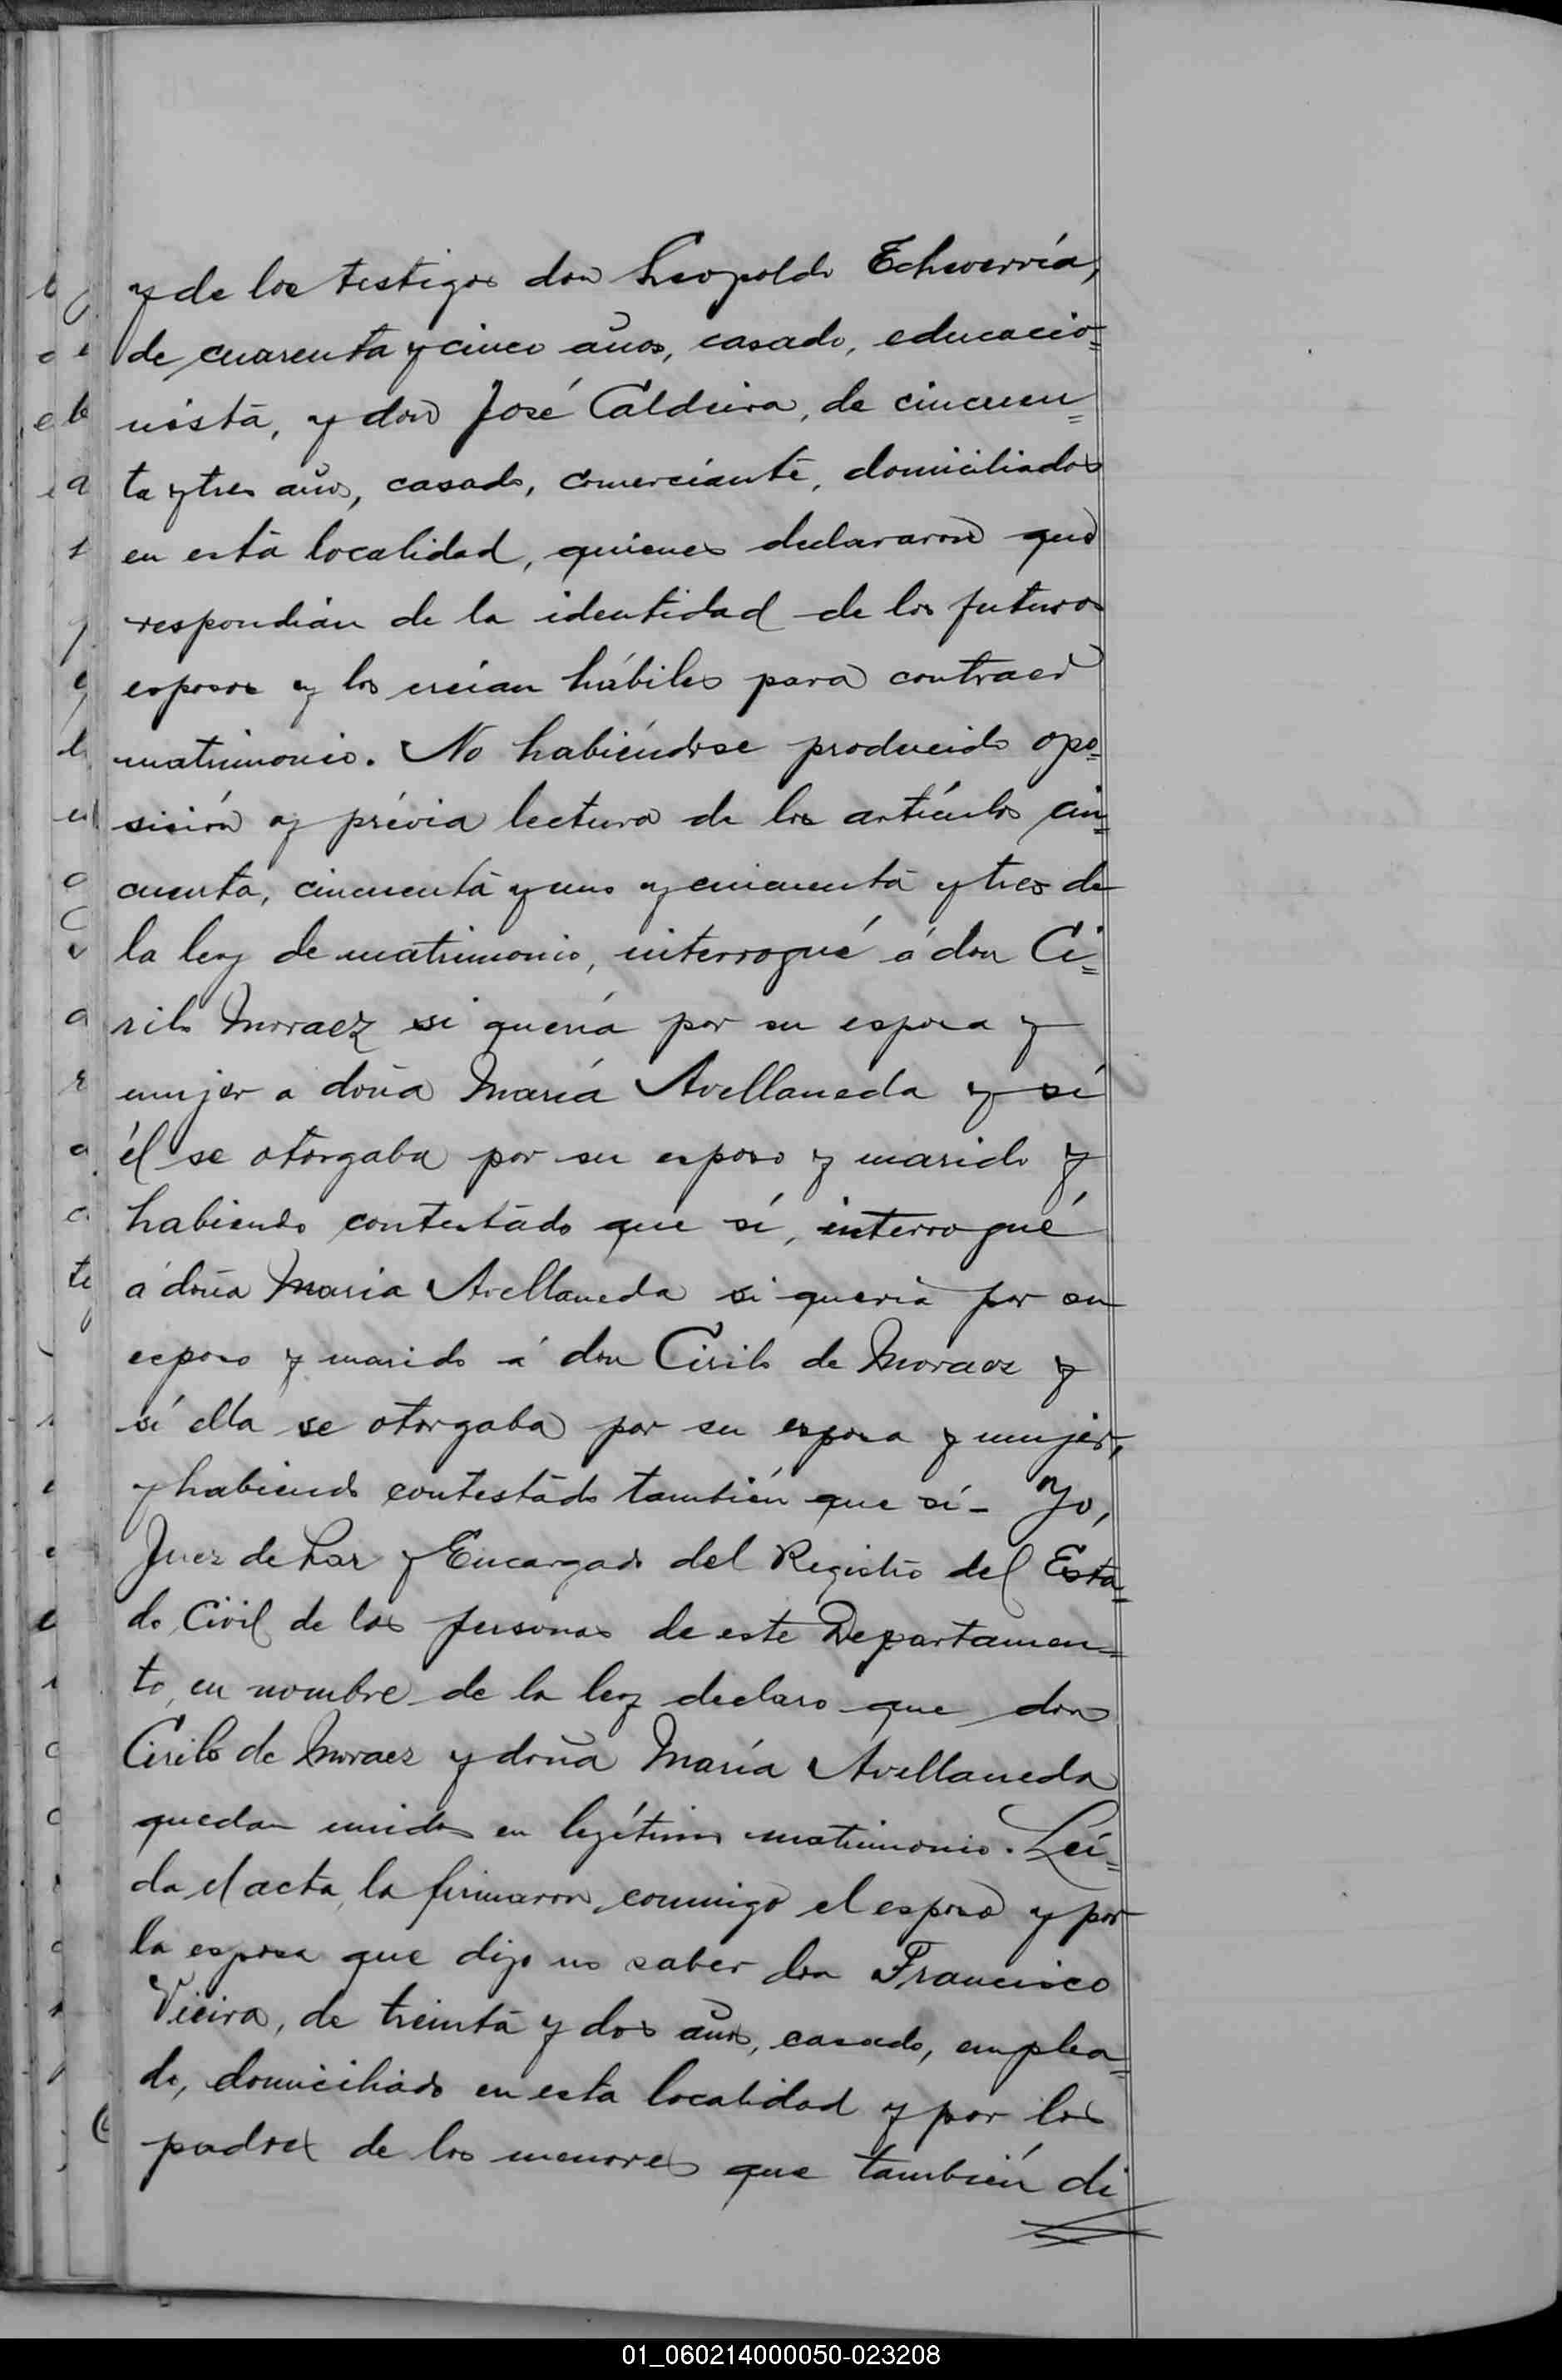 y de los testigos don Leopoldo Echeverría,
de cuarenta y cinco años, casado, educacio=
nista, y don José Caldeira, de cincuen=
ta y tres años, casado, comerciante, domiciliados
en esta localidad, quienes declararon que
respondían de la identidad de los futuros
esposos y los creían hábiles para contraer
matrimonio. No habiéndose producido opo=
sición y prévia lectura de los artículos cin=
cuenta, cincuenta y uno y cincuenta y tres de
la ley de matrimonio, interrogué á don Ci=
rilo Moraez si quería por su esposa y
mujer a doña María Avellaneda y sí
él se otorgaba por su esposo y marido y
habiendo contestado que sí, interrogué
á doña Maria Avellaneda si queria por su
esposo y marido á don Cirilo de Moraez y
sí ella se otorgaba por su esposa y mujer,
y habiendo contestado también que sí- Yo,
Juez de Paz y Encargado del Registro del Esta=
do Civil de las personas de este Departamen=
to, en nombre de la ley declaro que don
Cirilo de Moraez y doña María Avellaneda
quedan unidos en legítimo matrimonio. Leí=
da el acta, la firmaron conmigo el esposo y por
la esposa que dijo no saber don Francisco
Vieira, de treinta y dos años, casado, emplea=
do, domiciliado en esta localidad y por los
padres de los menores que también di
01_060214000050-023208